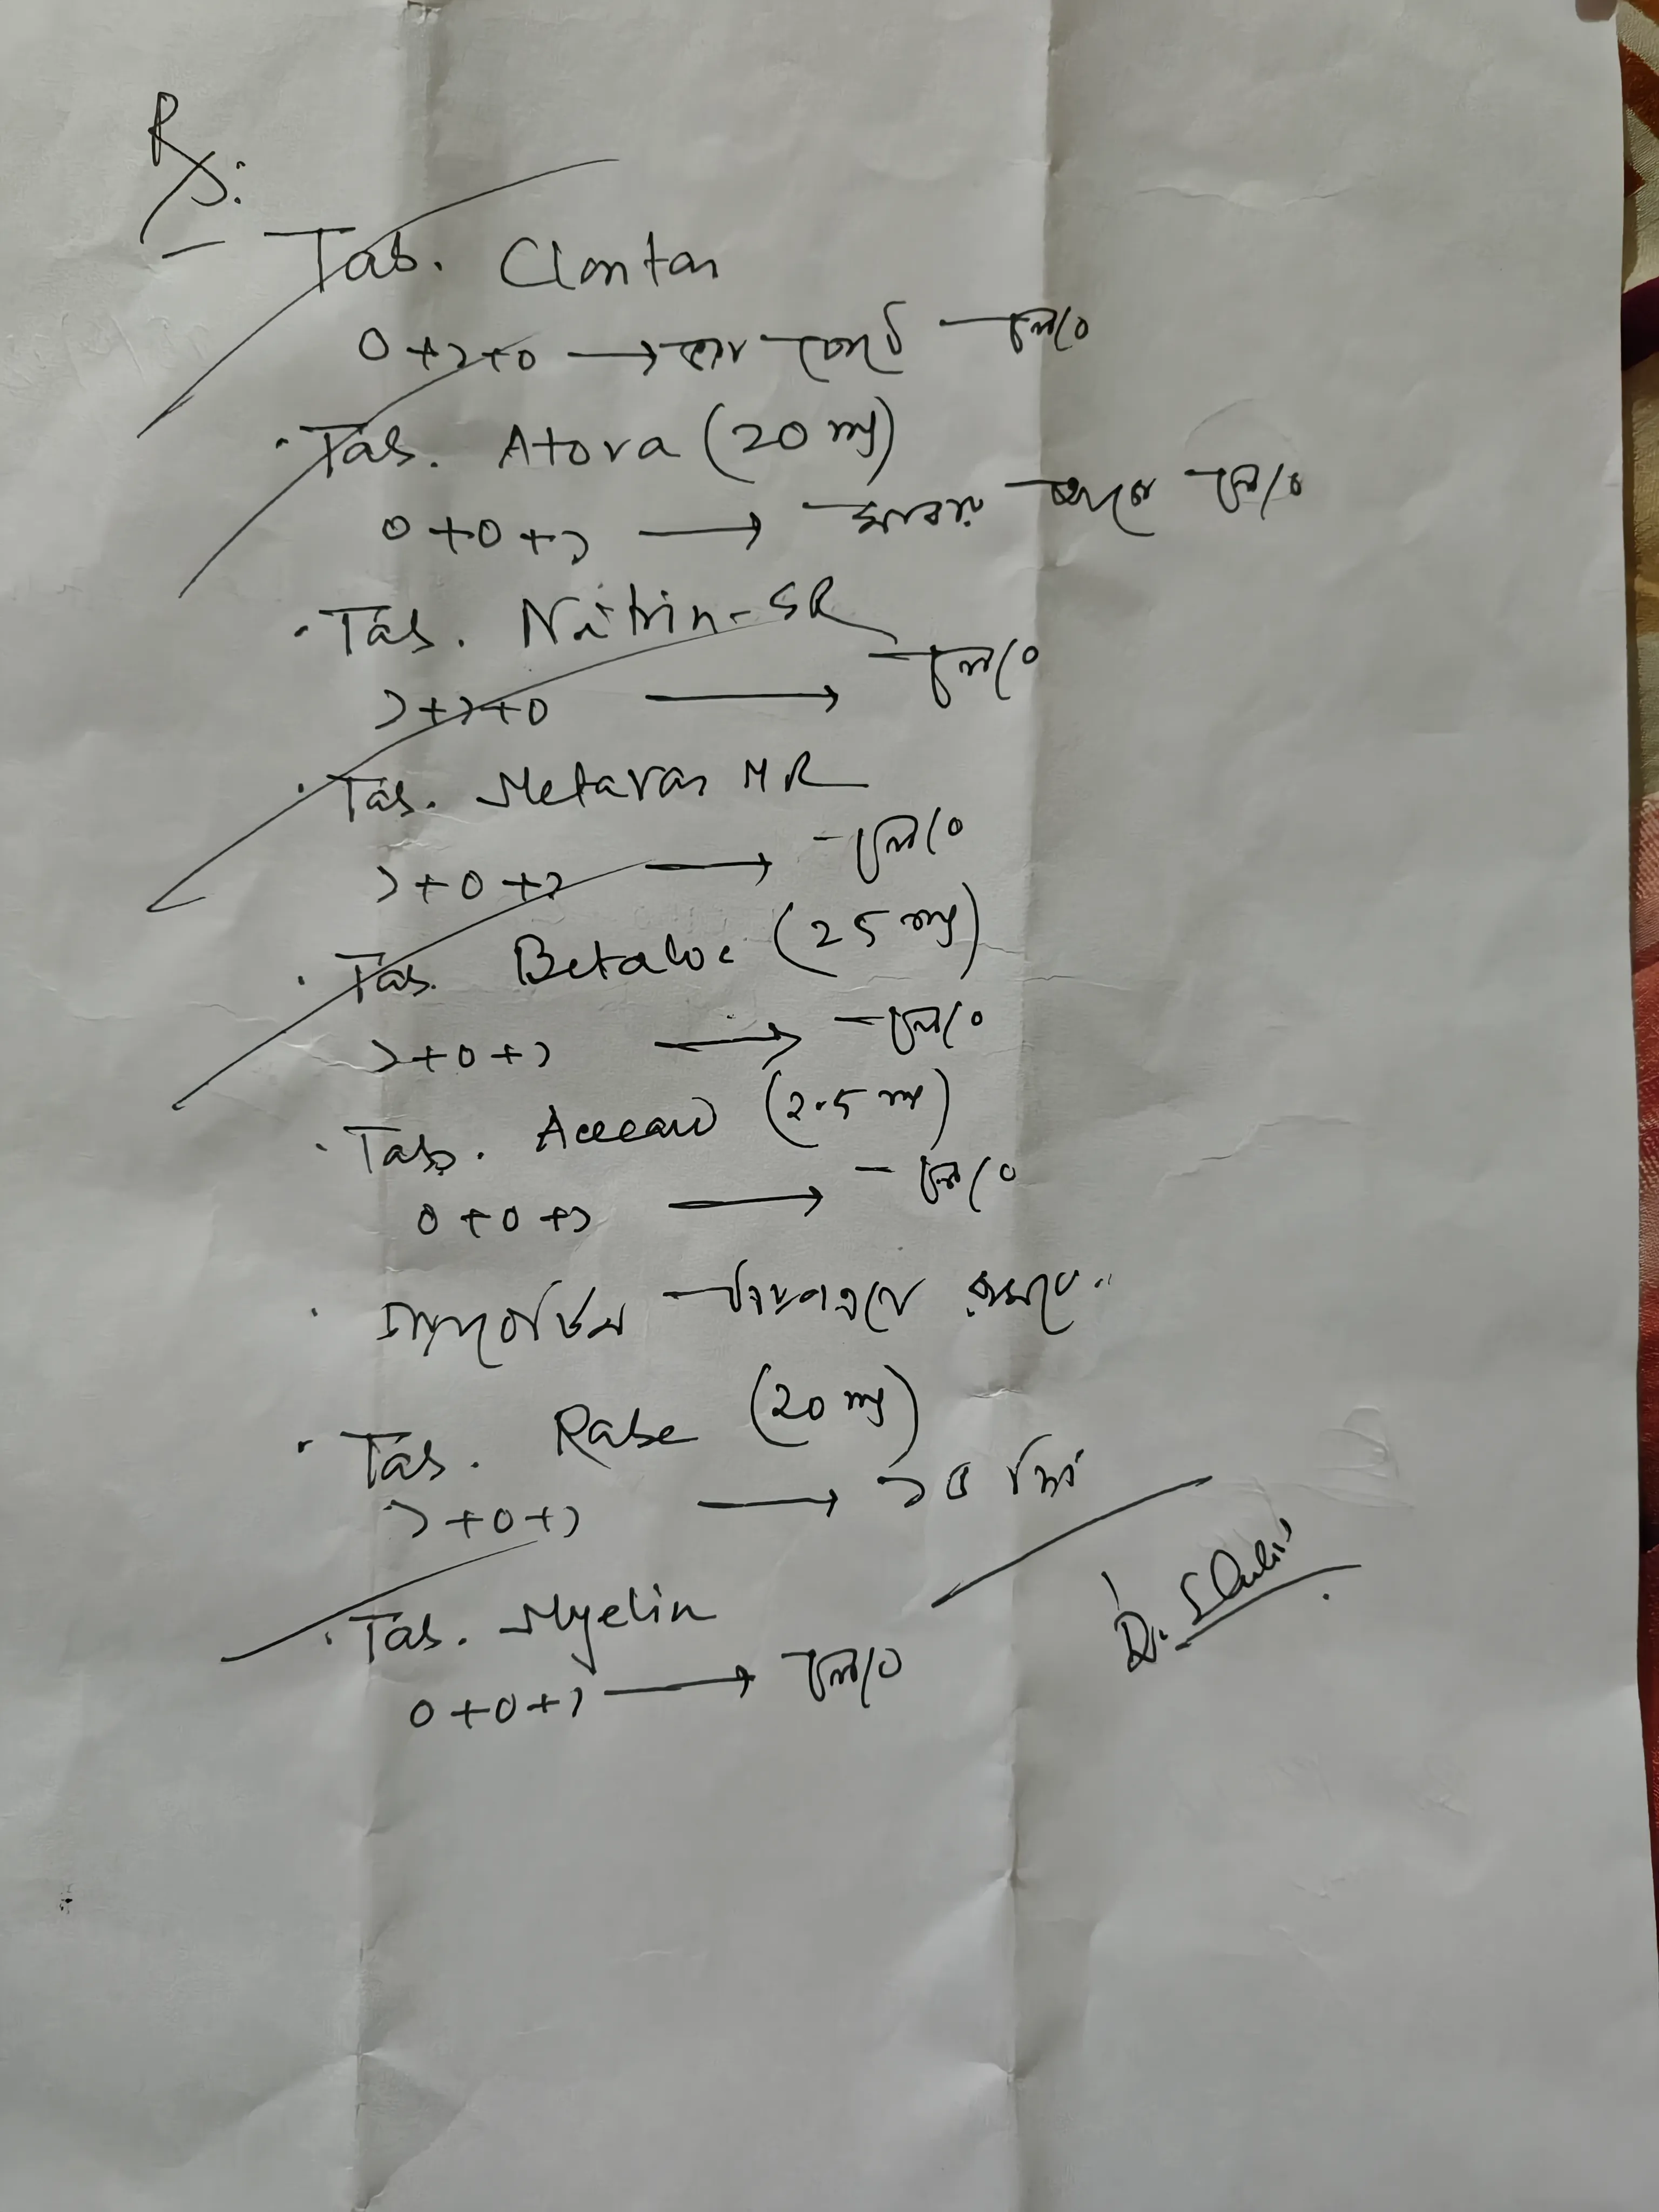 Rx:
Tab. Clontas
0+১+0 → ভরা পেটে চলবে
Tab. Atora (20 mg)
0+0+১ → খাবার আগে চলবে
Tab. Nitrin-SR
১+১+0 → চলবে
Tab. Metavas MR
১+0+১ → চলবে
Tab. Betaloc (25 mg)
১+0+১ → চলবে
Tab. Acecard (2.5 mg)
0+0+১ → চলবে
Tab. Rabe (20 mg)
১+0+১ → ১৫ দিন
Tab. Myelin
0+0+১ → চলবে
Dr.